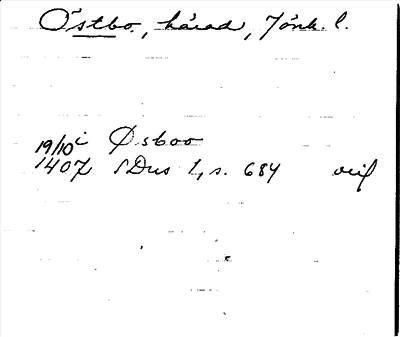 Östbo, härad, Jönk. l.
19/10 i Øsboo
1407 SDns 1, s. 684 orig